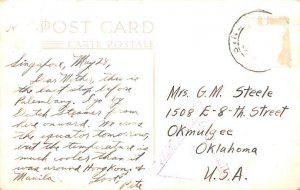 POST CARD
CARTE POSTALE
Singapore, May 29,
Dear Mother, this is
the last stop before
Palembang. I go by
Dutch Steamer from
here onward. We
the equator tomorrow,
but the temperature is
much cooler than it
was around Hongkong &
Manila. Love
Pete
Mrs. G.M. Steele
1508 E-8-th. Street
Okmulgee
Oklahoma
U.S.A.